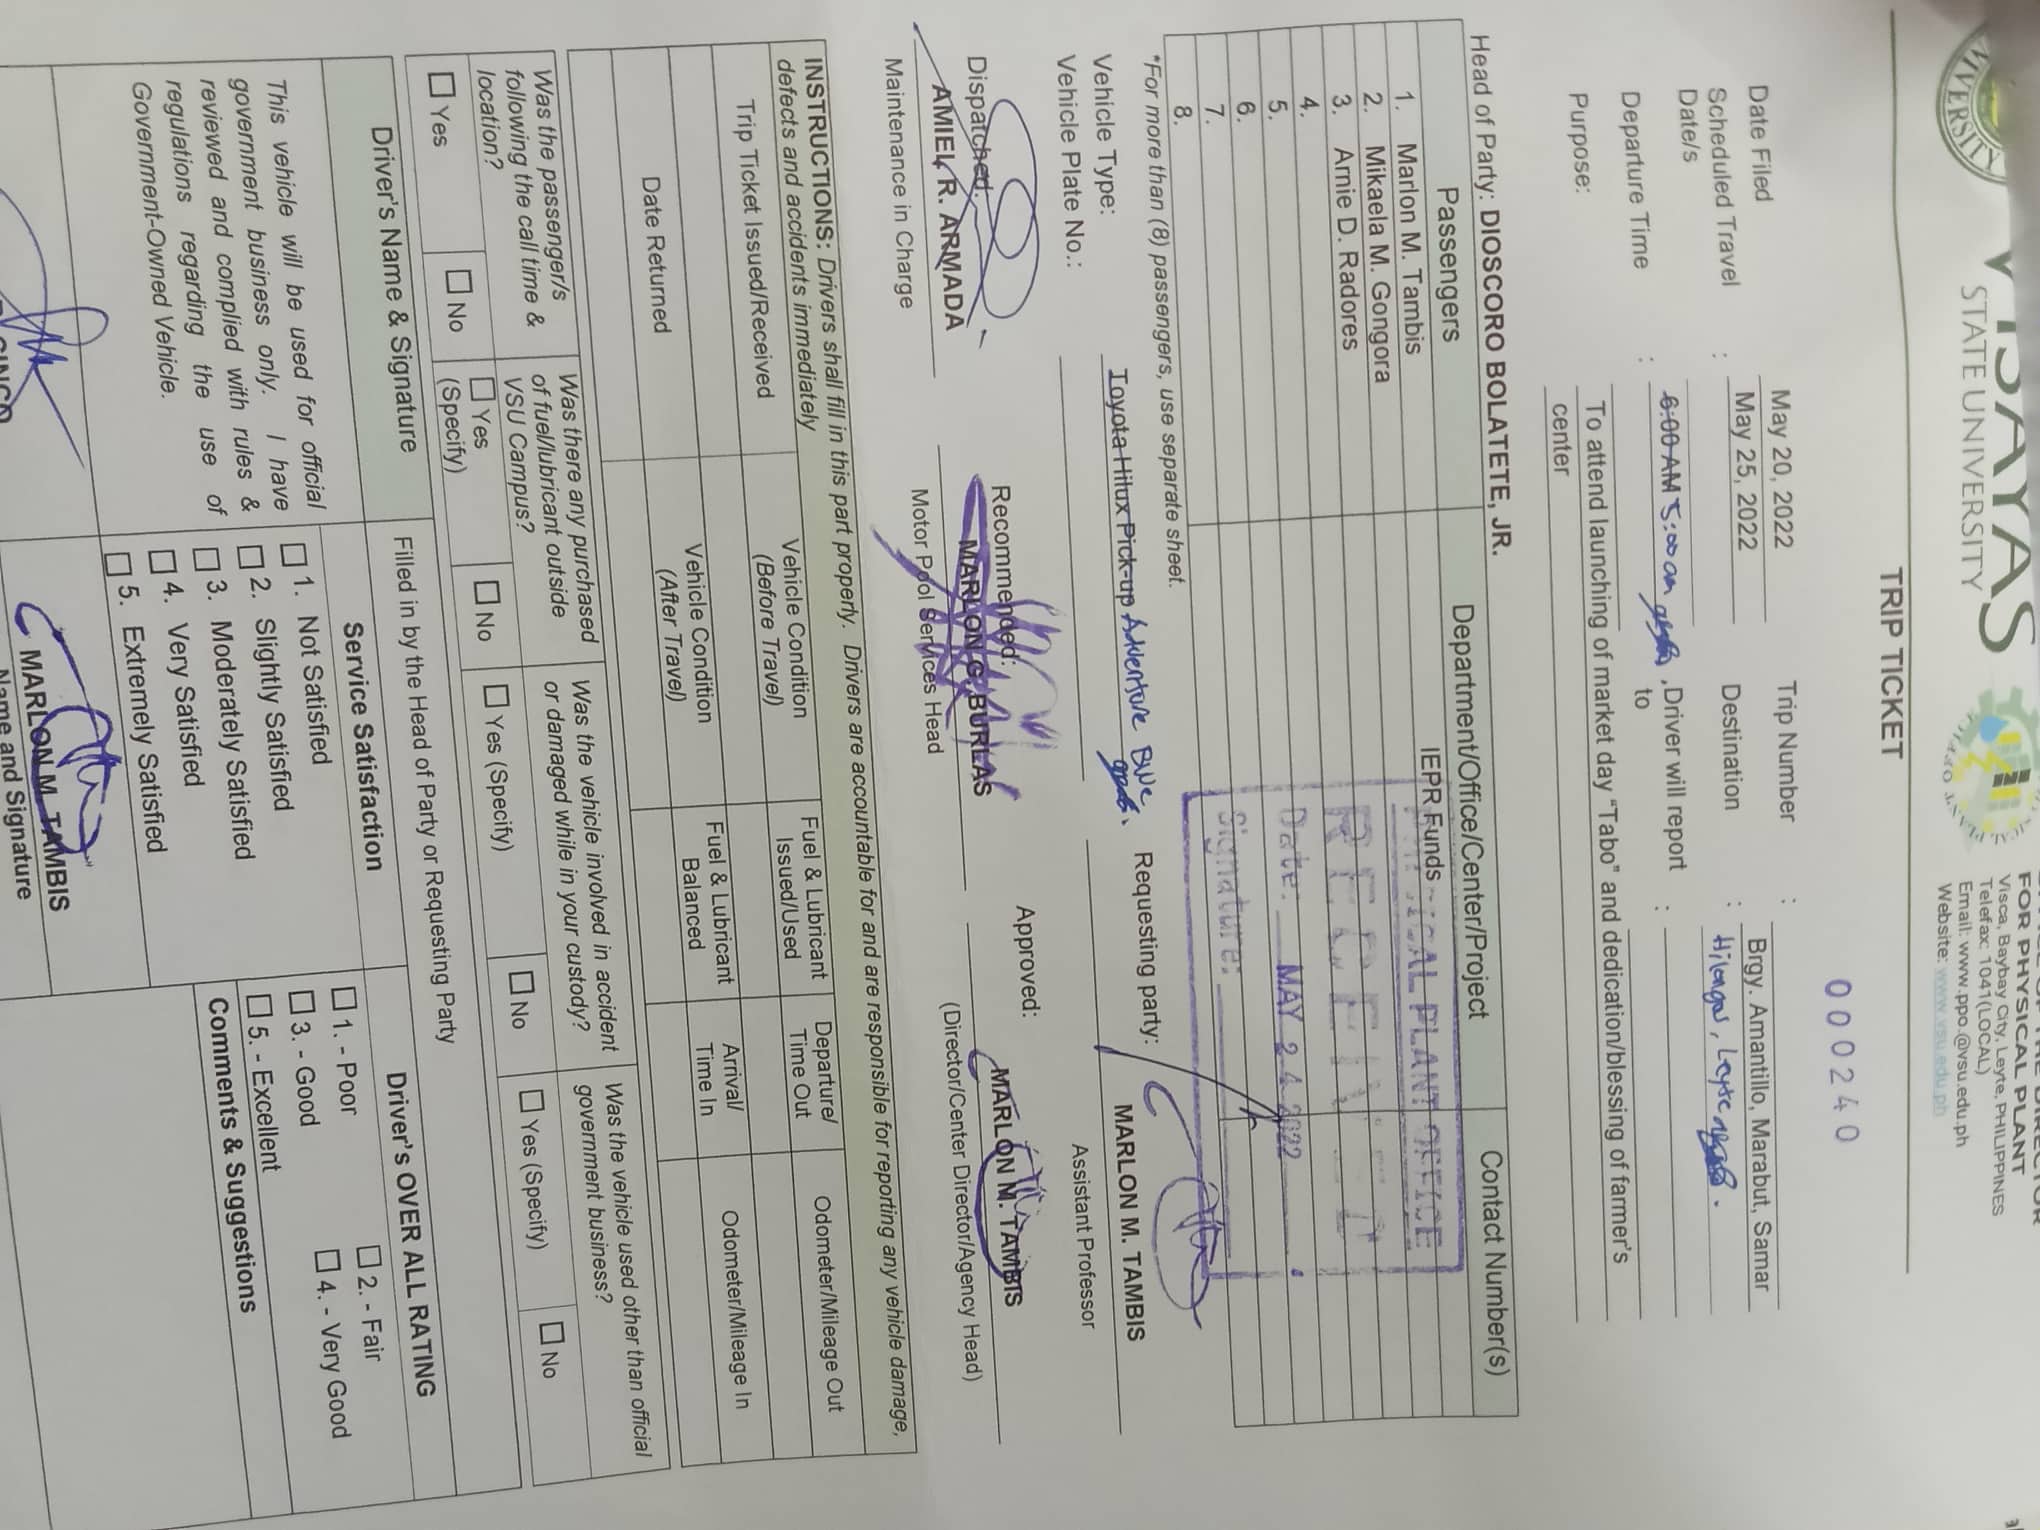 VISAYAS
STATE UNIVERSITY
UNIVERSITY
FOR PHYSICAL PLANT
Visca, Baybay City, Leyte, PHILIPPINES
Telefax: 1041(LOCAL)
Email: www.ppo.@vsu.edu.ph
Website: www.vsu.edu.ph
TRIP TICKET
000240
Date Filed : May 20, 2022 Trip Number :
Scheduled Travel Date/s : May 25, 2022 Destination : Brgy. Amantillo, Marabut, Samar
Hilongos, Leyte
Departure Time : 6:00 AM 5:00 am , Driver will report to :
Purpose: To attend launching of market day “Tabo” and dedication/blessing of farmer's
center
Head of Party: DIOSCORO BOLATETE, JR.
Passengers Department/Office/Center/Project Contact Number(s)
1. Marlon M. Tambis IEPR Funds
2. Mikaela M. Gongora
3. Arnie D. Radores
4.
5.
6.
7.
8.
PHYSICAL PLANT OFFICE
RECEIVED
Date: MAY 24 2022
Signature:
*For more than (8) passengers, use separate sheet.
Vehicle Type: Toyota Hilux Pick-up Adventure Blue Requesting party:
Vehicle Plate No.:
MARLON M. TAMBIS
Assistant Professor
Dispatched: Recommended: Approved:
AMIEL R. ARMADA MARLON G. BURLAS MARLON M. TAMBIS
Maintenance in Charge Motor Pool Services Head (Director/Center Director/Agency Head)
INSTRUCTIONS: Drivers shall fill in this part properly. Drivers are accountable for and are responsible for reporting any vehicle damage,
defects and accidents immediately
Trip Ticket Issued/Received Vehicle Condition (Before Travel) Fuel & Lubricant Issued/Used Departure/ Time Out Odometer/Mileage Out
Date Returned Vehicle Condition (After Travel) Fuel & Lubricant Balanced Arrival/ Time In Odometer/Mileage In
Was the passenger/s following the call time & location?
Was there any purchased of fuel/lubricant outside VSU Campus?
Was the vehicle involved in accident or damaged while in your custody?
Was the vehicle used other than official government business?
Yes No Yes (Specify) No Yes (Specify) No Yes (Specify) No
Driver's Name & Signature Filled in by the Head of Party or Requesting Party
This vehicle will be used for official
government business only. I have
reviewed and complied with rules &
regulations regarding the use of
Government-Owned Vehicle.
Service Satisfaction
1. Not Satisfied
2. Slightly Satisfied
3. Moderately Satisfied
4. Very Satisfied
5. Extremely Satisfied
MARLON M. TAMBIS
Name and Signature
Driver's OVER ALL RATING
1. - Poor 2. - Fair
3. - Good 4. - Very Good
5. - Excellent
Comments & Suggestions